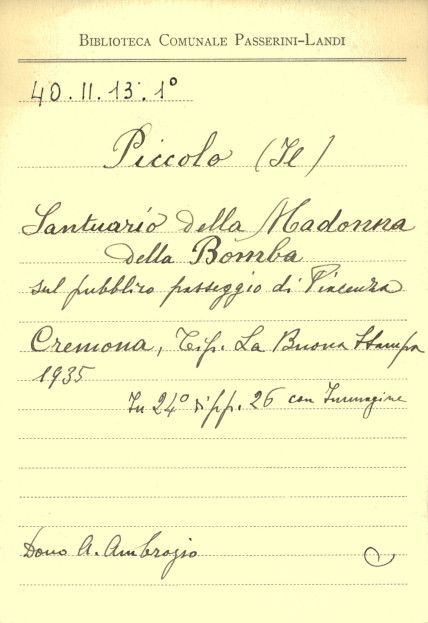 BIBLIOTECA COMUNALE PASSERINI-LANDI
40.II.13.1°
Piccolo (Il)
Santuario della Madonna
della Bomba
sul pubblico passeggio di Piacenza
Cremona, Tip. La Buona Stampa
1935
In 24° di pp. 26 con Immagine
Dono A. Ambrogio